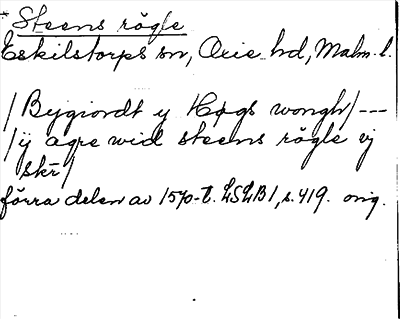 * Steens rögle
Eskilstorps sn, Oxie hd, Malm. l.
/Bygiordt y Høgs wongh/---
/ij agre wid steens rögle vj
skr/
förra delen av 1570-t. LSLB1, s. 419. orig.